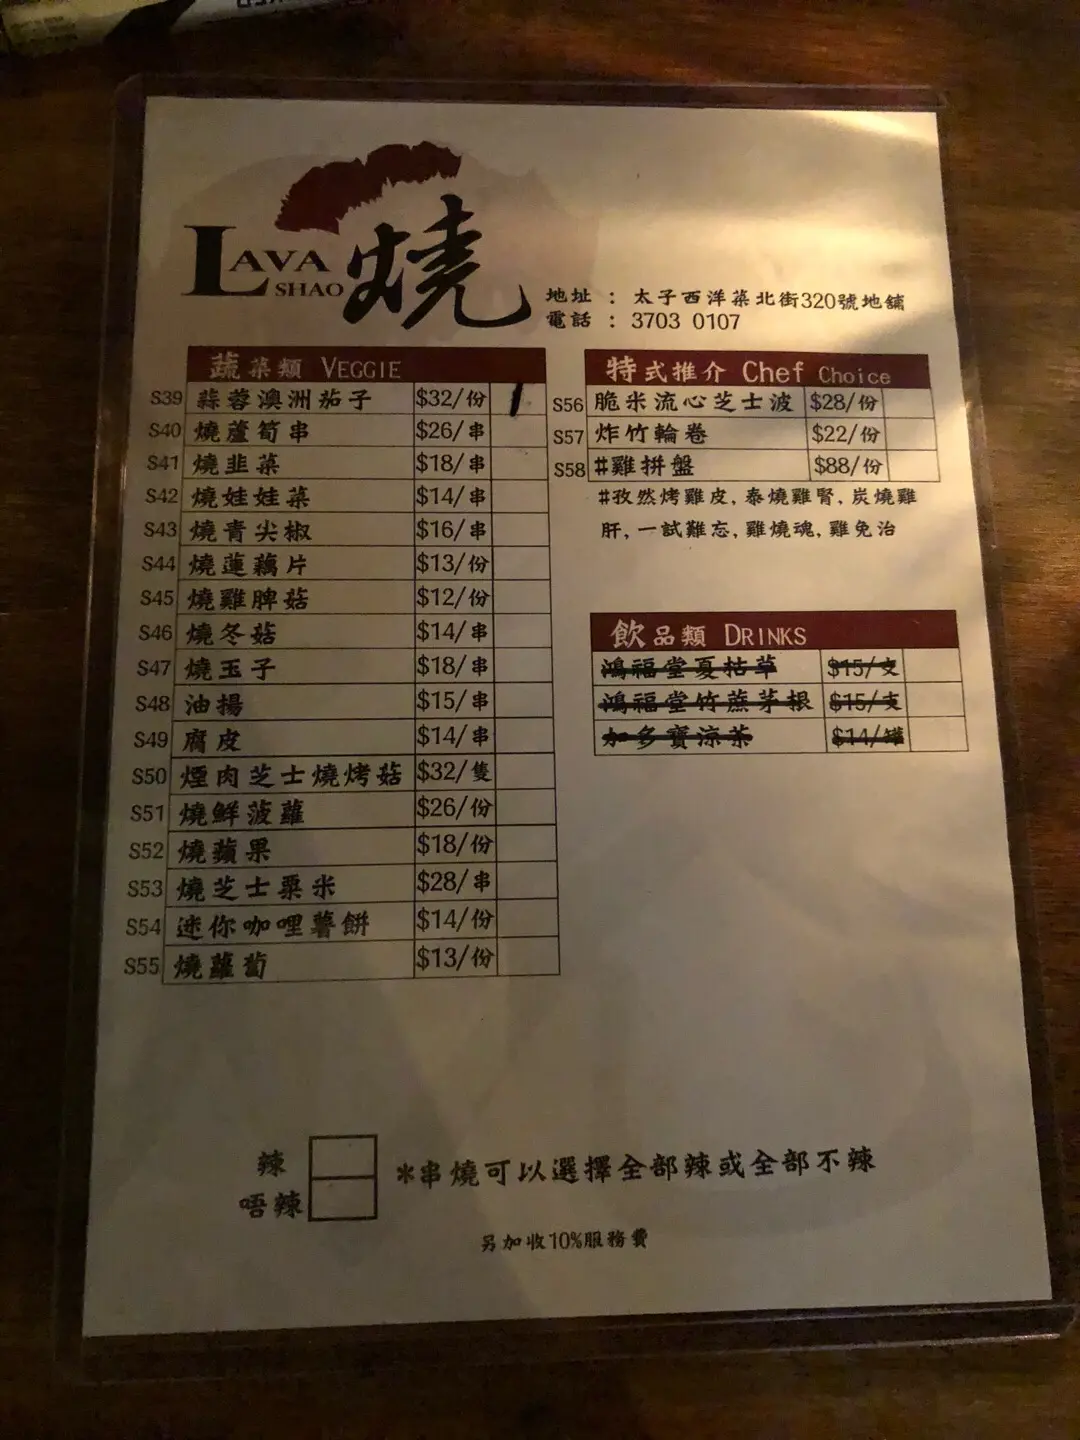 LAVA SHAO 燒
地址 : 太子西洋菜北街320號地舖
電話 : 3703 0107
蔬菜類 VEGGIE
S39 蒜蓉澳洲茄子 $32/份 1
S40 燒蘆筍串 $26/串
S41 燒韭菜 $18/串
S42 燒娃娃菜 $14/串
S43 燒青尖椒 $16/串
S44 燒蓮藕片 $13/份
S45 燒雞脾菇 $12/份
S46 燒冬菇 $14/串
S47 燒玉子 $18/串
S48 油揚 $15/串
S49 腐皮 $14/串
S50 煙肉芝士燒烤菇 $32/隻
S51 燒鮮菠蘿 $26/份
S52 燒蘋果 $18/份
S53 燒芝士粟米 $28/串
S54 迷你咖哩薯餅 $14/份
S55 燒蘿蔔 $13/份
特式推介 Chef Choice
S56 脆米流心芝士波 $28/份
S57 炸竹輪卷 $22/份
S58 #雞拼盤 $88/份
#孜然烤雞皮, 泰燒雞腎, 炭燒雞
肝, 一試難忘, 雞燒魂, 雞免治
飲品類 DRINKS
鴻福堂夏枯草 $15/支
鴻福堂竹蔗茅根 $15/支
加多寶涼茶 $14/罐
辣
唔辣
*串燒可以選擇全部辣或全部不辣
另加收10%服務費